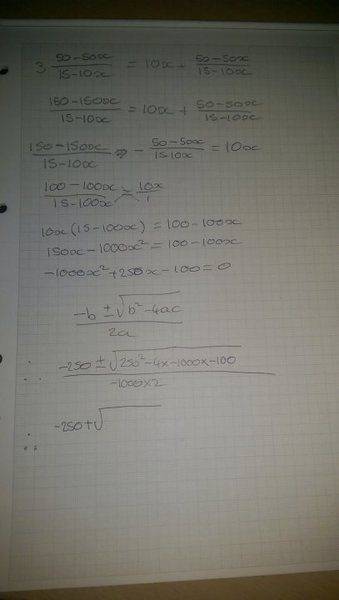 3. (50-50x)/(15-10x) = 10x + (50-50x)/(15-10x)
(150-150x)/(15-10x) = 10x + (50-50x)/(15-10x)
(150-150x)/(15-10x) ⇒ - (50-50x)/(15-10x) = 10x
(100-100x)/(15-100x) = 10x/1
10x(15-100x) = 100-100x
150x-1000x² = 100-100x
-1000x²+250x-100=0
(-b ± √(b²-4ac))/(2a)
∴ (-250 ± √(250²-4x-1000x-100))/(-1000x2)
∴ -250+√